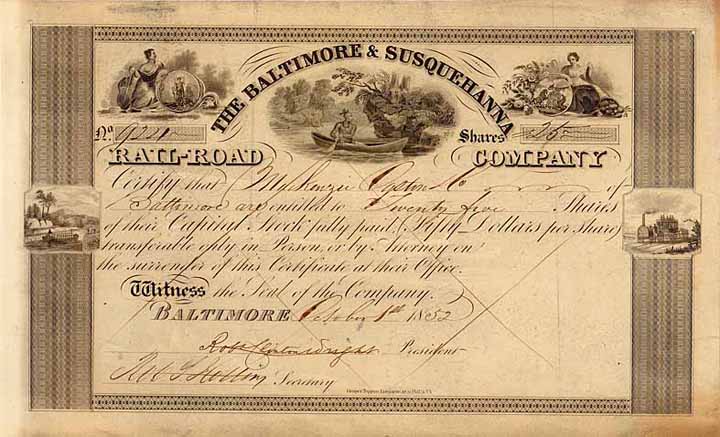 THE BALTIMORE & SUSQUEHANNA
No. 9221 Shares 25
RAIL-ROAD COMPANY
Certify that McKenzie & Co of
Baltimore are entitled to Twenty five Shares
of their Capital Stock fully paid (Fifty Dollars per share)
transferable only in Person, or by Attorney on
the surrender of this Certificate at their Office.
Witness the Seal of the Company.
BALTIMORE October 1st 1852
President
Secretary